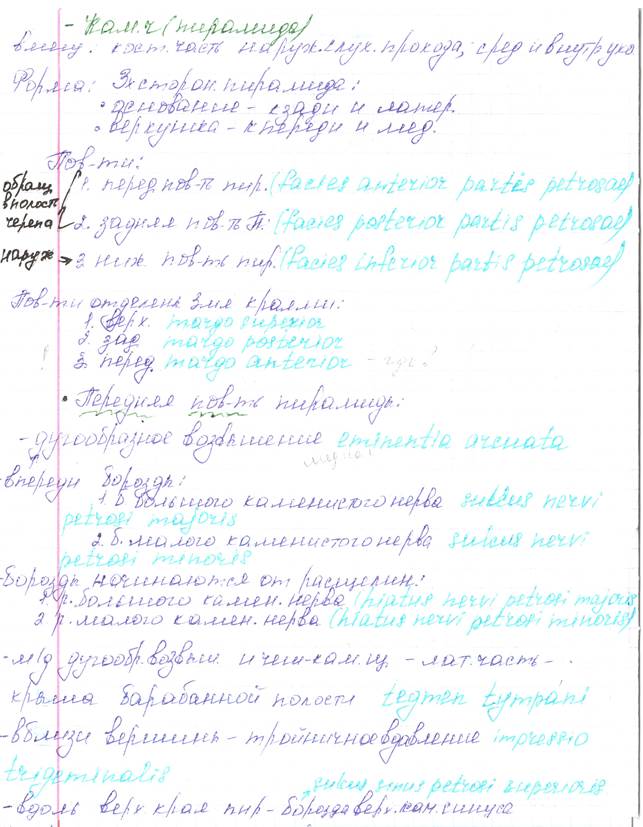 - Кам.ч (пирамида)
вмещ: кост.часть наруж.слух.прохода, сред и внутр ухо
Форма: 3хсторон.пирамида:
• основание - кзади и латер.
• верхушка - кпереди и мед.
Пов-ти:
обращ в полость черепа
1. перед пов-ть пир. (facies anterior partis petrosae)
2. задняя пов-ть П: (facies posterior partis petrosae)
наруж → 3 ниж. пов-ть пир. (facies inferior partis petrosae)
Пов-ти отделены 3мя краями:
1. верх. margo superior
2. зад margo posterior
! 3. перед. margo anterior - где?
• Передняя пов-ть пирамиды:
- дугообразное возвышение eminentia arcuata
- впереди борозды:
1. б большого каменистого нерва sulcus nervi
petrosi majoris
2. б. малого каменистого нерва sulcus nervi
petrosi minoris
- Борозды начинаются от расщелин:
1. р. большого камен. нерва (hiatus nervi petrosi majoris
2 р. малого камен. нерва (hiatus nervi petrosi minoris)
- м/д дугообр. возвыш и чеш-кам.щ - лат.часть -
крыша барабанной полости tegmen tympani
- вблизи вершины - тройничное вдавление impressio
trigeminalis
sulcus sinus petrosi superioris
- вдоль верх края пир - борозда верх. кам. синуса